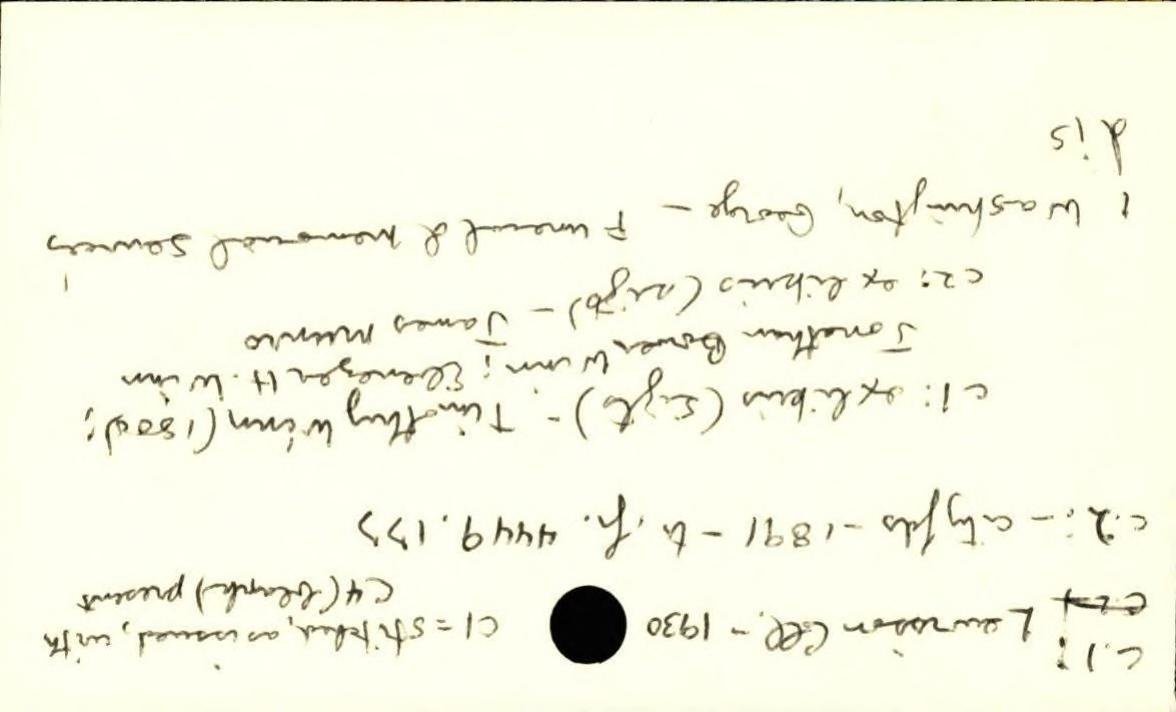 c.1: Lewisson Coll. - 1930 C1 = stitched, as issued, with
c.2: C4 (blank) present
c.2: - city fds - 1891 - tr. fr. 4449.177
c1: ex libris (sigs) - Timothy Winn (1804);
Jonathan Bower Winn; Ebenezer H. Winn
c2: ex libris (sigs) - James Munro
1 Washington, George - Funeral & memorial services
dis